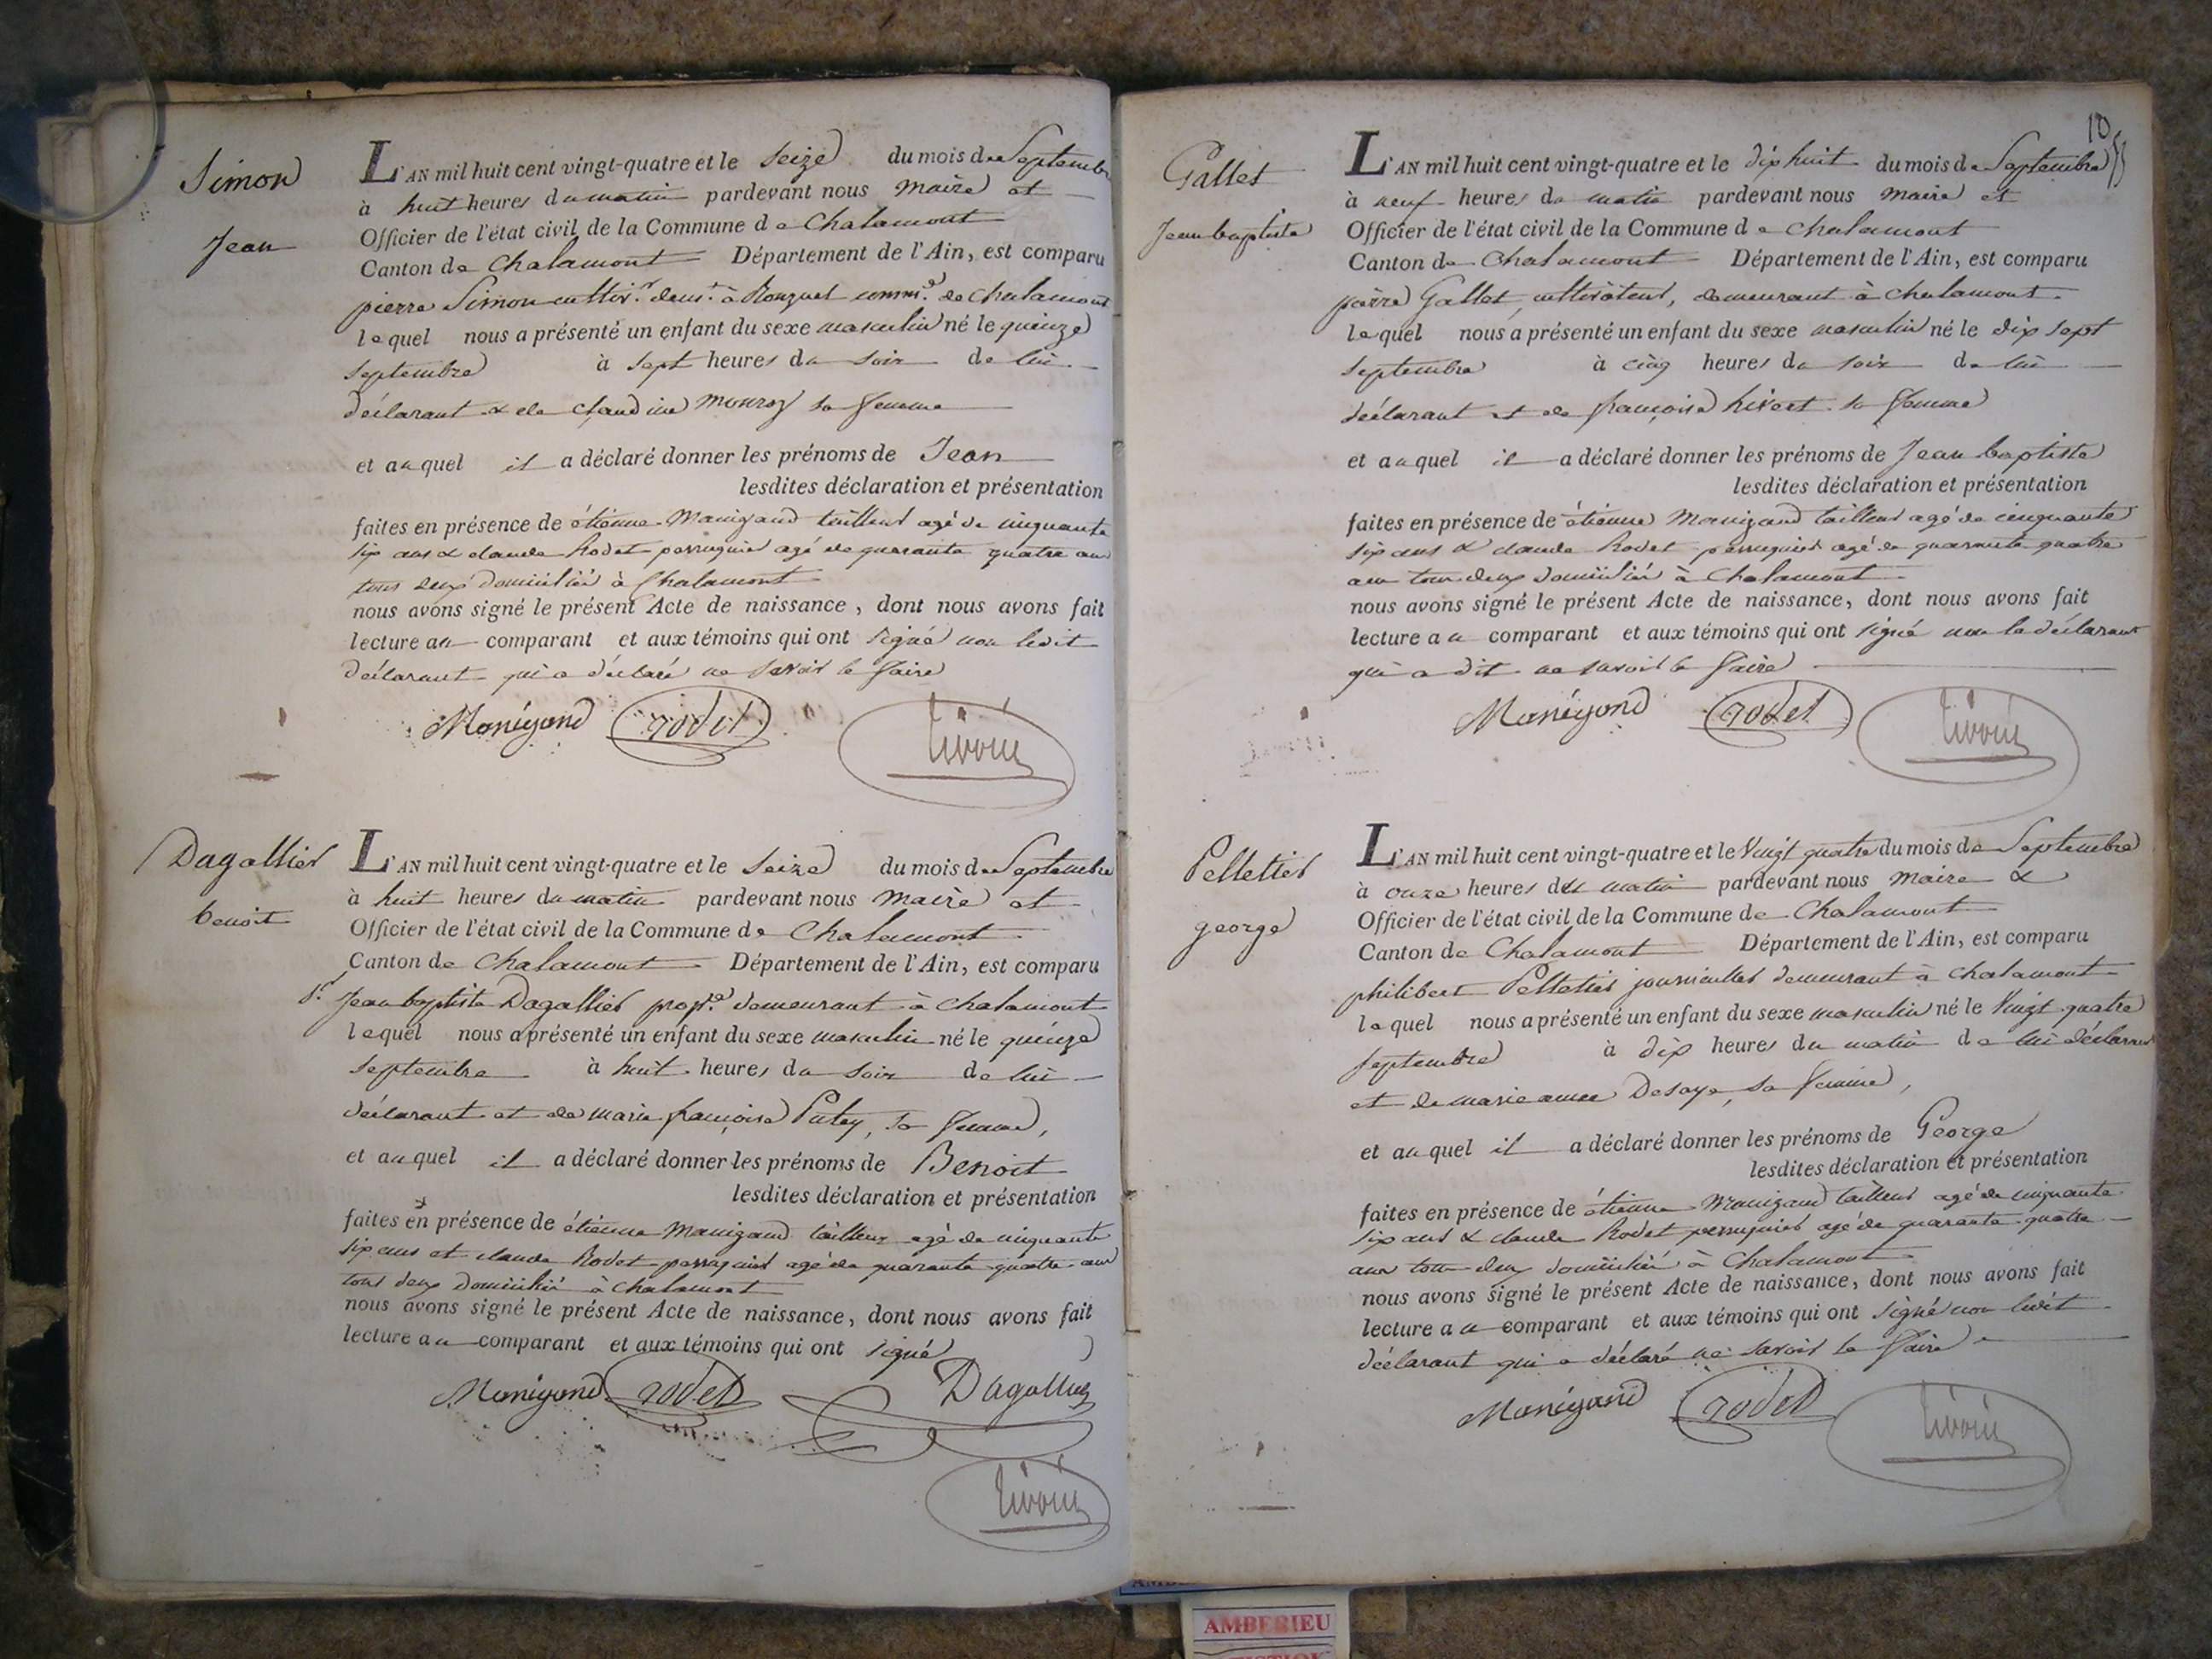 Simon
Jean
L'AN mil huit cent vingt-quatre et le seize du mois de Septembre
à huit heures du matin pardevant nous maire et
Officier de l'état civil de la Commune de Chalamont
Canton de Chalamont Département de l'Ain, est comparu
pierre Simon cultivr. demt. à Ronzuel comme. de Chalamont
lequel nous a présenté un enfant du sexe masculin né le quinze
septembre à sept heures du soir de lui
déclarant & de claudine monroz sa femme
et auquel il a déclaré donner les prénoms de Jean
lesdites déclaration et présentation
faites en présence de étienne Manigand tailleur agé de cinquante
six ans & claude Rodet perruquier agé de quarante quatre ans
tous deux domiciliés à Chalamont
nous avons signé le présent Acte de naissance, dont nous avons fait
lecture au comparant et aux témoins qui ont signé non ledit
déclarant qui a déclaré ne savoir le faire
Manigand rodet
Dagallier
benoit
L'AN mil huit cent vingt-quatre et le seize du mois de Septembre
à huit heures du matin pardevant nous maire et
Officier de l'état civil de la Commune de Chalamont
Canton de Chalamont Département de l'Ain, est comparu
Sr. Jean baptiste Dagallier propre. demeurant à chalamont
lequel nous a présenté un enfant du sexe masculin né le quinze
septembre à huit heures du soir de lui
déclarant et de marie françoise Putey, sa femme,
et auquel il a déclaré donner les prénoms de Benoit
lesdites déclaration et présentation
faites en présence de étienne Manigand tailleur agé de cinquante
six ans et claude Rodet perruquier agé de quarante quatre ans
tous deux domiciliés à Chalamont
nous avons signé le présent Acte de naissance, dont nous avons fait
lecture au comparant et aux témoins qui ont signé
Manigand rodet Dagallier
10
Gallet
Jean baptiste
L'AN mil huit cent vingt-quatre et le dix huit du mois de Septembre
à neuf heures du matin pardevant nous maire et
Officier de l'état civil de la Commune de chalamont
Canton de Chalamont Département de l'Ain, est comparu
pierre Gallet, cultivateur, demeurant à chalamont
lequel nous a présenté un enfant du sexe masculin né le dix sept
septembre à cinq heures du soir de lui
déclarant et de françoise hivert sa femme
et auquel il a déclaré donner les prénoms de Jean baptiste
lesdites déclaration et présentation
faites en présence de étienne Manigand tailleur agé de cinquante
six ans & claude Rodet perruquier agé de quarante quatre
ans tous deux domiciliés à Chalamont
nous avons signé le présent Acte de naissance, dont nous avons fait
lecture au comparant et aux témoins qui ont signé non le déclarant
qui a dit ne savoir le faire
Manigand rodet
Pelletier
george
L'AN mil huit cent vingt-quatre et le Vingt quatre du mois de Septembre
à onze heures du matin pardevant nous maire &
Officier de l'état civil de la Commune de Chalamont
Canton de Chalamont Département de l'Ain, est comparu
philibert Pelletier journallier demeurant à chalamont
lequel nous a présenté un enfant du sexe masculin né le Vingt quatre
septembre à dix heures du matin de lui déclarant
et de marie anne Desaye, sa femme,
et auquel il a déclaré donner les prénoms de George
lesdites déclaration et présentation
faites en présence de étienne Manigand tailleur agé de cinquante
six ans & claude Rodet perruquier agé de quarante quatre
ans tous deux domiciliés à Chalamont
nous avons signé le présent Acte de naissance, dont nous avons fait
lecture au comparant et aux témoins qui ont signé non ledit
déclarant qui a déclaré ne savoir le faire
Manigand rodet
AMBERIEU